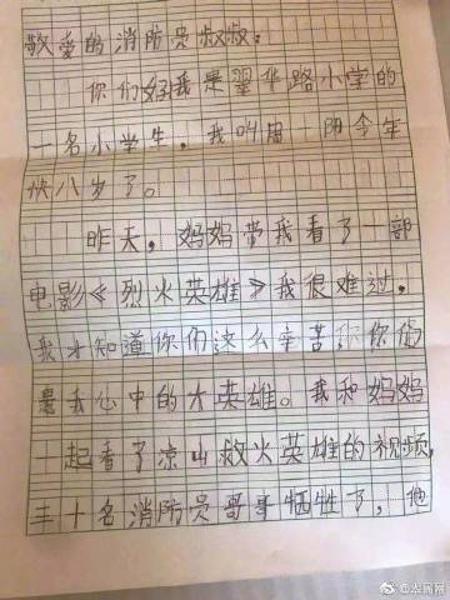 敬爱的消防员叔叔：
你们好我是翠华路小学的
一名小学生，我叫周一阳今年
快八岁了。
昨天，妈妈带我看了一部
电影《烈火英雄》我很难过，
我才知道你们这么辛苦，你们
是我心中的大英雄。我和妈妈
一起看了凉山救火英雄的视频，
三十名消防员哥哥牺牲了，他